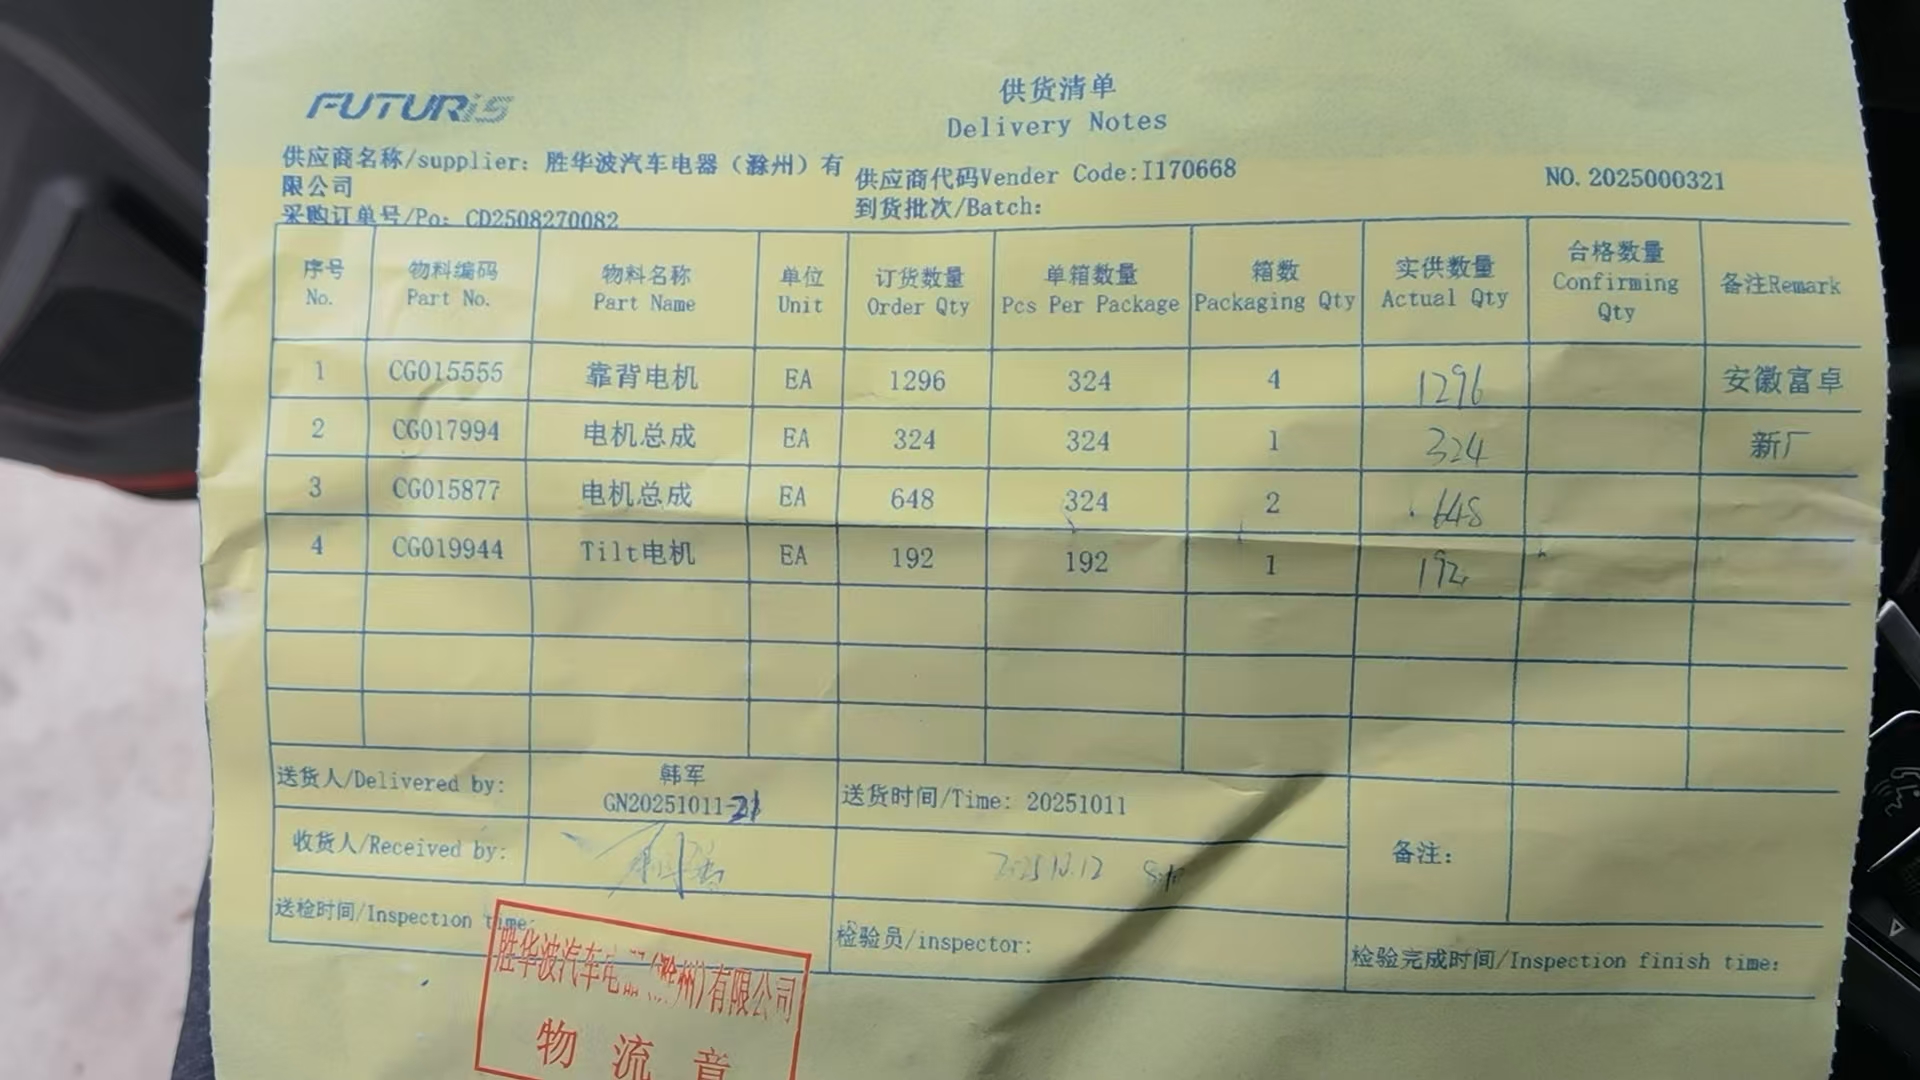 FUTURiS
供货清单
Delivery Notes
供应商名称/supplier: 胜华波汽车电器（滁州）有
限公司
供应商代码Vender Code:I170668
NO.2025000321
采购订单号/Po: CD2508270082
到货批次/Batch:
序号 物料编码 物料名称 单位 订货数量 单箱数量 箱数 实供数量 合格数量 备注Remark
No. Part No. Part Name Unit Order Qty Pcs Per Package Packaging Qty Actual Qty Confirming
Qty
1 CG015555 靠背电机 EA 1296 324 4 1296 安徽富卓
2 CG017994 电机总成 EA 324 324 1 324 新厂
3 CG015877 电机总成 EA 648 324 2 648
4 CG019944 Tilt电机 EA 192 192 1 192
送货人/Delivered by: 韩军
GN20251011-
送货时间/Time: 20251011
收货人/Received by: 2025.10.12
备注:
送检时间/Inspection time:
检验员/inspector:
检验完成时间/Inspection finish time:
胜华波汽车电器(滁州)有限公司
物流章